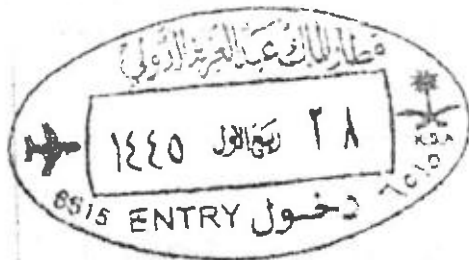 مطار الملك عبد العزيز الدولي
٢٨ ربيع الاول ١٤٤٥
K.S.A
6515 ENTRY دخول ٦٥١٥